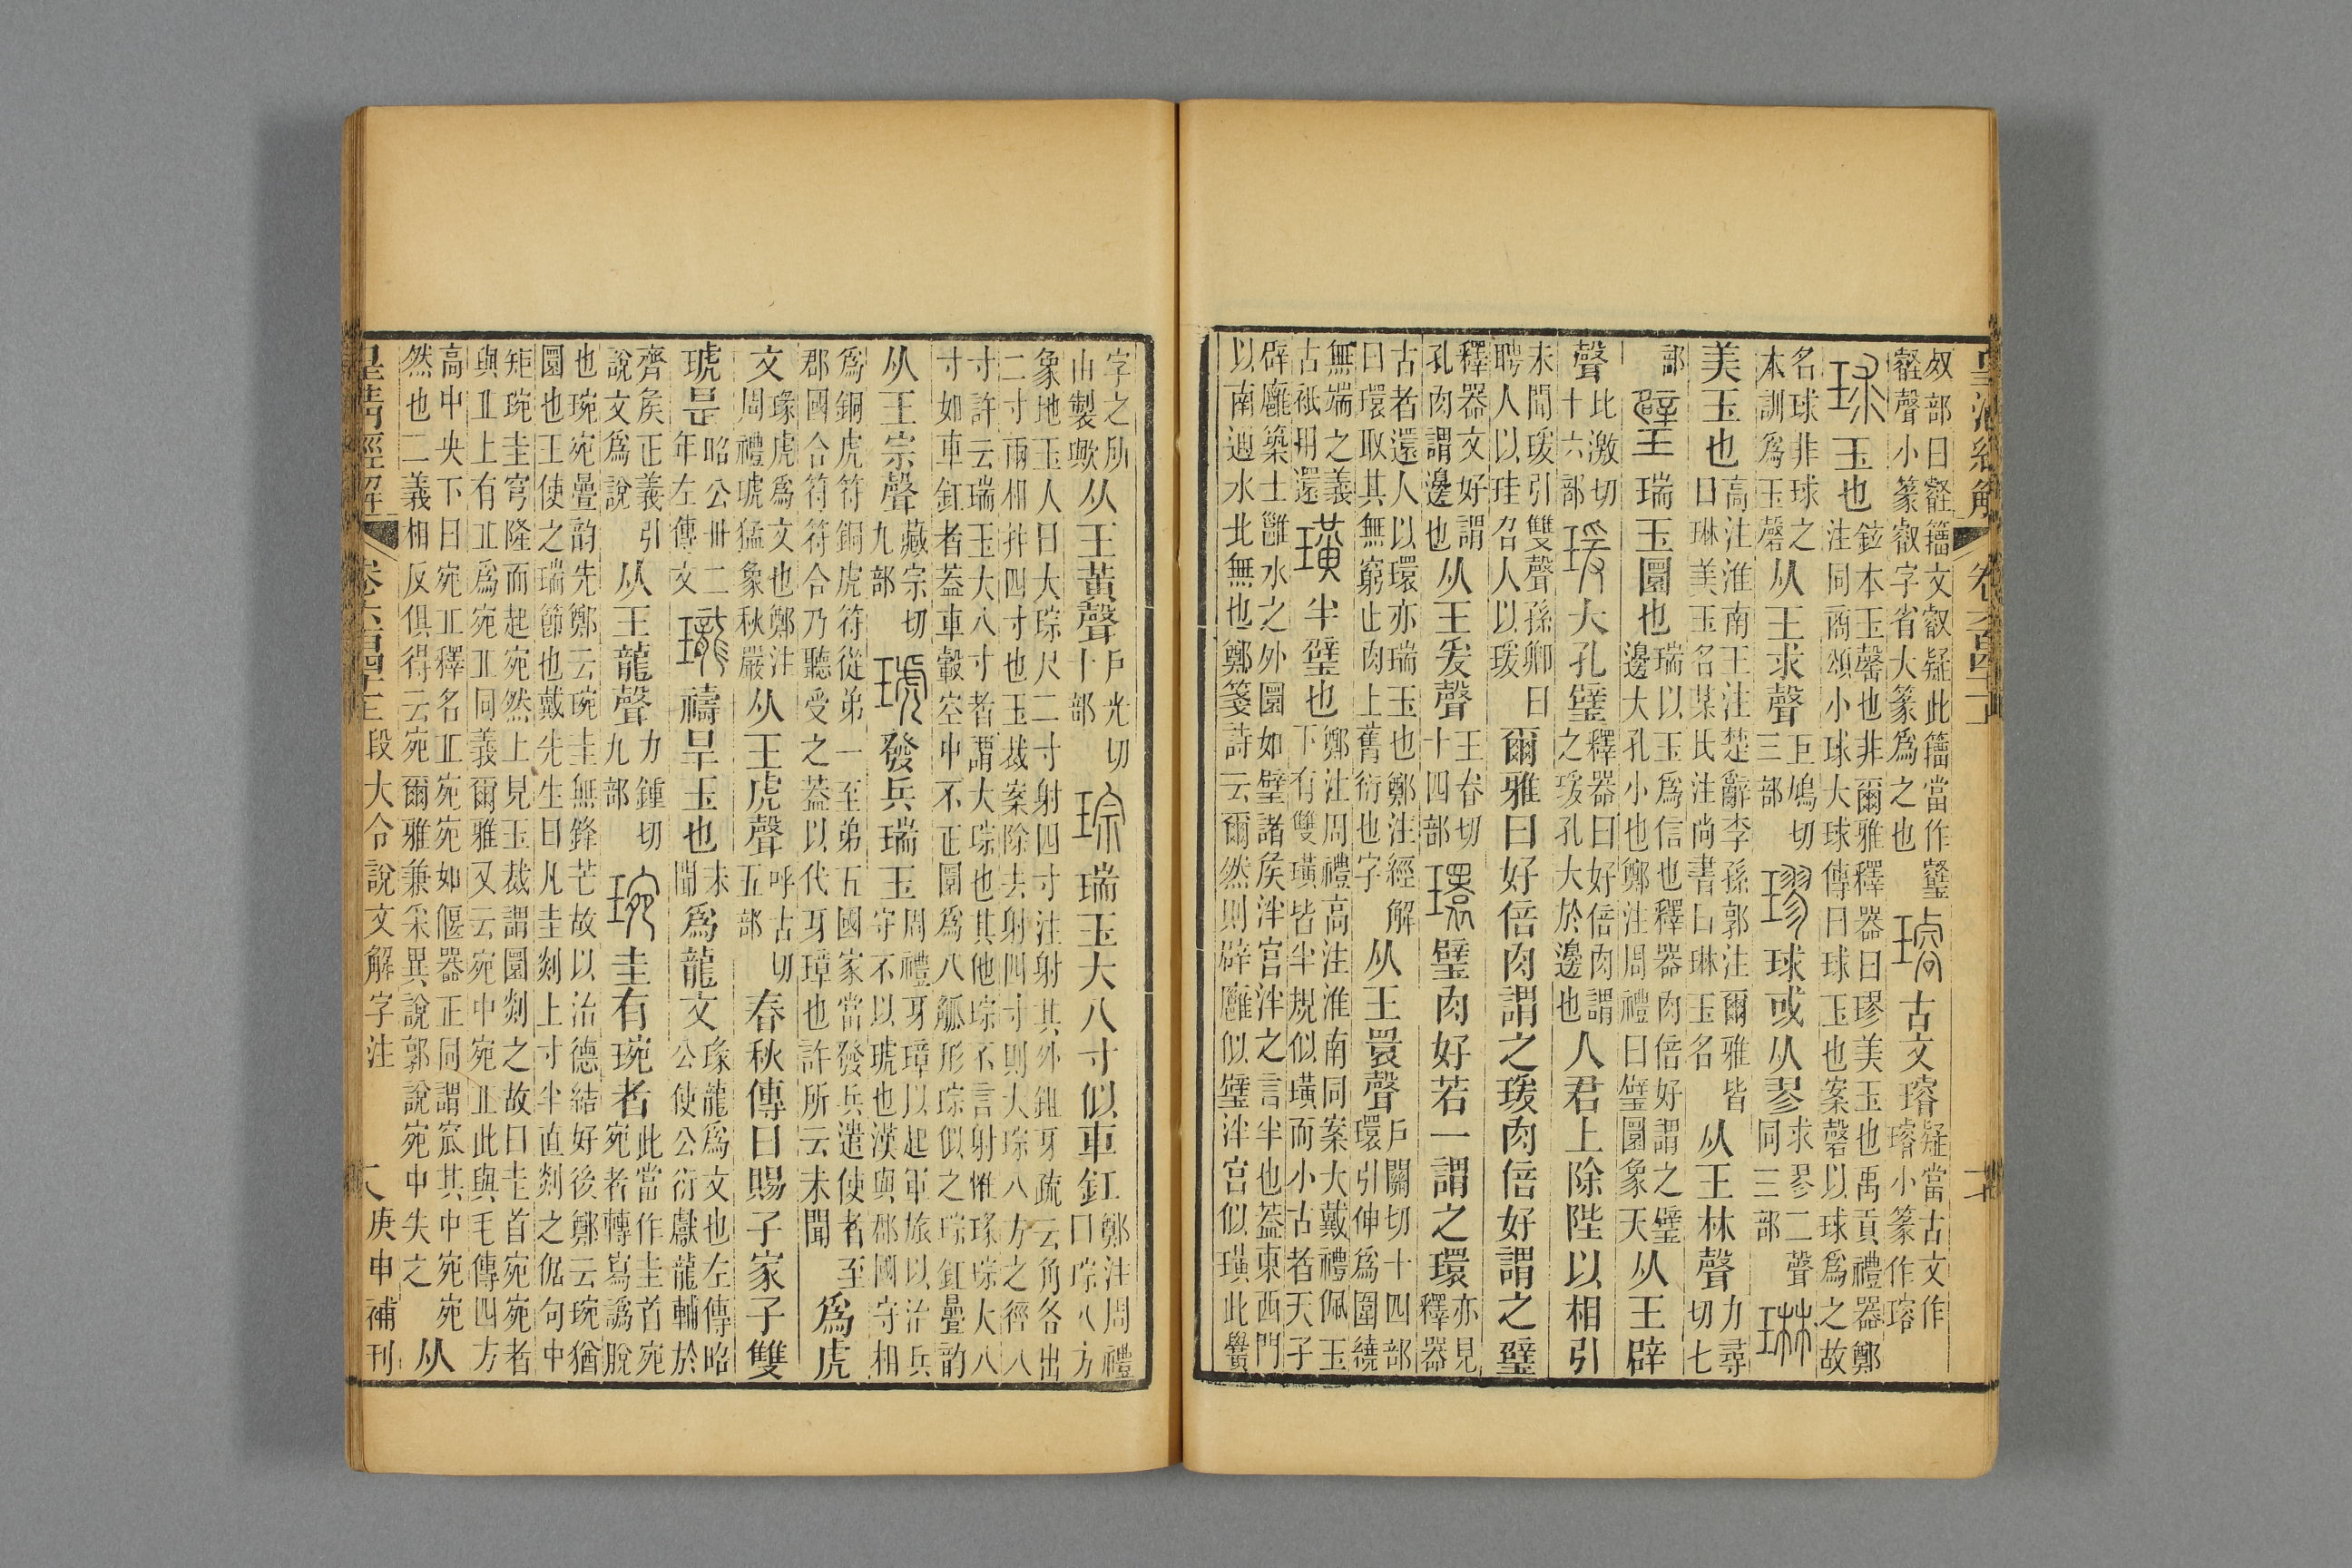 奴部曰壡籒文叡疑此籒當作壡聲小篆叡字省大篆爲之也古文璿疑當古文作璿小篆作瑢
球玉也鉉本玉磬也非爾雅釋器曰璆美玉也禹貢禮器鄭注同商頌小球大球傳曰球玉也案磬以球爲之故
名球非球之本訓爲玉磬从王求聲巨鳩切三部璆球或从翏求翏二聲同三部琳
美玉也高注淮南王注楚辭李孫郭注爾雅皆曰琳美玉名某氏注尚書曰琳玉名从王林聲力尋切七
部璧瑞玉圜也瑞以玉爲信也釋器肉倍好謂之璧邊大孔小也鄭注周禮曰璧圜象天从王辟
聲比激切十六部瑗大孔璧釋器曰好倍肉謂之瑗孔大於邊也人君上除陛以相引
未聞瑗引雙聲孫卿曰聘人以珪召人以瑗爾雅曰好倍肉謂之瑗肉倍好謂之璧
釋器文好謂孔肉謂邊也从王爰聲王眷切十四部環璧肉好若一謂之環亦見釋器
古者還人以環亦瑞玉也鄭注經解曰環取其無窮止肉上舊衍也字从王睘聲戶關切十四部環引伸爲圍繞
無端之義古衹用還璜半璧也鄭注周禮高注淮南同案大戴禮佩玉下有雙璜皆半規似璜而小古者天子
辟廱築土雝水之外圜如璧諸矦泮宫泮之言半也葢東西門以南通水北無也鄭箋詩云爾然則辟廱似璧泮宫似璜此黌
字之所由製歟从王黃聲戶光切十部琮瑞玉大八寸似車釭鄭注周禮曰琮八方
象地玉人曰大琮尺二寸射四寸注射其外鉏牙疏云角各出二寸兩相幷四寸也玉裁案除去射四寸則大琮八方之徑八
寸許云瑞玉大八寸者謂大琮也其他琮不言射惟瑑琮大八寸如車釭者葢車轂空中不正圜爲八觚形琮似之琮釭曡韵
从王宗聲藏宗切九部琥發兵瑞玉周禮牙璋以起軍旅以治兵守不以琥也漢與郡國守相
爲銅虎符銅虎符從弟一至弟五國家當發兵遣使者至郡國合符符合乃聽受之葢以代牙璋也許所云未聞爲虎
文瑑虎爲文也鄭注周禮琥猛象秋嚴从王虎聲呼古切五部春秋傳曰賜子家子雙
琥是昭公卅二年左傳文瓏禱旱玉也未聞爲龍文瑑龍爲文也左傳昭公使公衍獻龍輔於
齊矦正義引說文爲說从王龍聲力鍾切九部琬圭有琬者此當作圭首宛宛者轉寫譌脫
也琬宛曡韵先鄭云琬圭無鋒芒故以治德結好後鄭云琬猶圜也王使之瑞節也戴先生曰凡圭剡上寸半直剡之倨句中
矩琬圭穹隆而起宛然上見玉裁謂圜剡之故曰圭首宛宛者與丘上有丘爲宛丘同義爾雅又云宛中宛丘此與毛傳四方
高中央下曰宛丘釋名丘宛宛如偃器正同謂窊其中宛宛然也二義相反俱得云宛爾雅兼采異說郭說宛中失之从
皇清經解 卷六百四十一 段大令說文解字注 庚申補刊